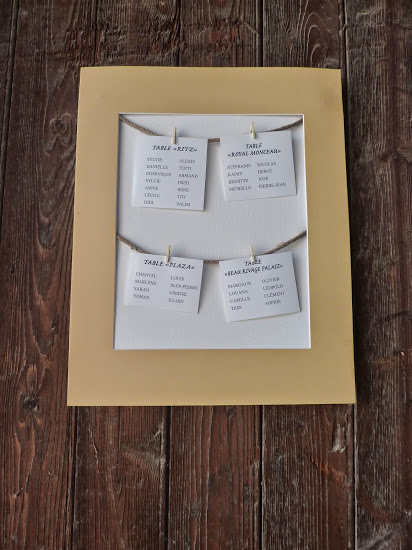 TABLE «RITZ»
SYLVIE ALEXIS
DANIELLE TOTTI
DOMINIQUE ARMAND
SYLVIE FRED
ANNIE RENÉ
CÉCILE TITI
GABI SALIM
TABLE
«ROYAL MONCEAU»
STÉPHANIE NICOLAS
KATHY HERVÉ
BRIGITTE JOSÉ
MICHELLE PIERRE-JEAN
TABLE «PLAZA»
CHANTAL LOUIS
MARLÈNE JEAN-PIERRE
SARAH DIMITRI
JULIEN
TABLE
«BEAU RIVAGE PALACE»
MARGAUX OLIVIER
LOUANA LEOPOLD
CAMILLE CLEMENT
TESS SOPHIE